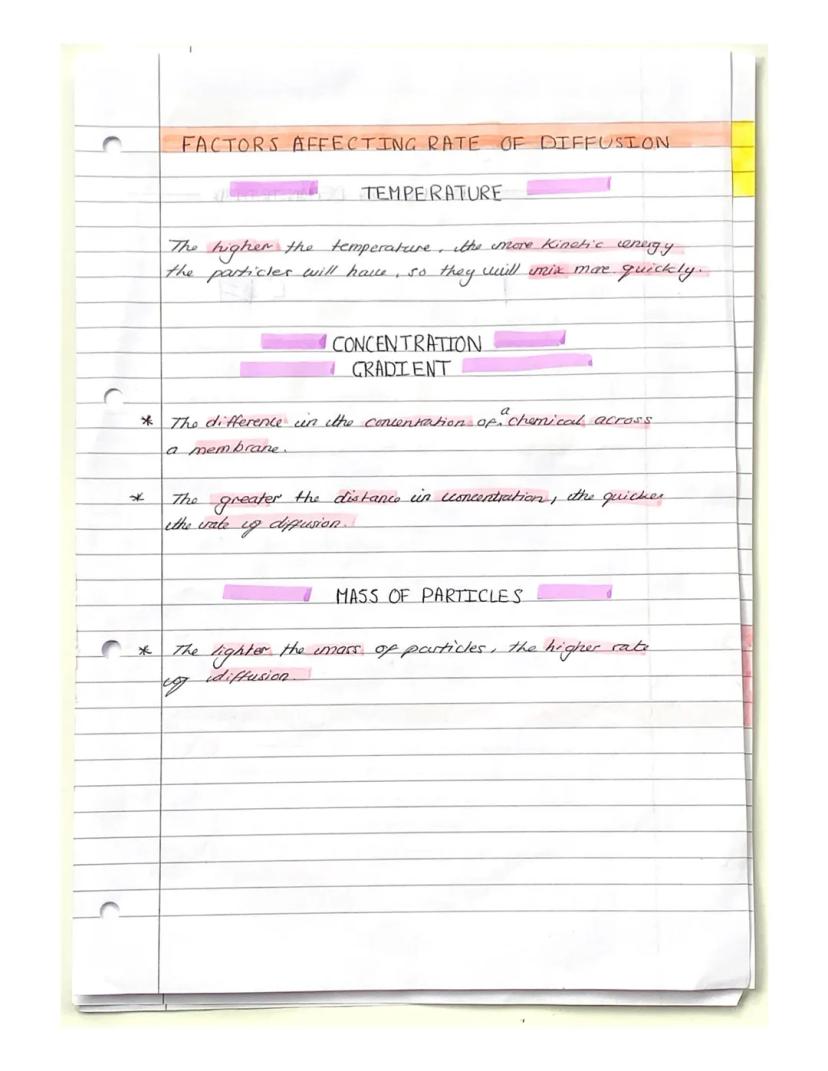 FACTORS AFFECTING RATE OF DIFFUSION
TEMPERATURE
The higher the temperature, the more Kinetic energy
the particles will have, so they will mix more quickly.
CONCENTRATION
GRADIENT
* The difference in the concentration of a chemical across
a membrane.
* The greater the distance in concentration, the quicker
the rate of diffusion.
MASS OF PARTICLES
* The lighter the mass of particles, the higher rate
of diffusion.